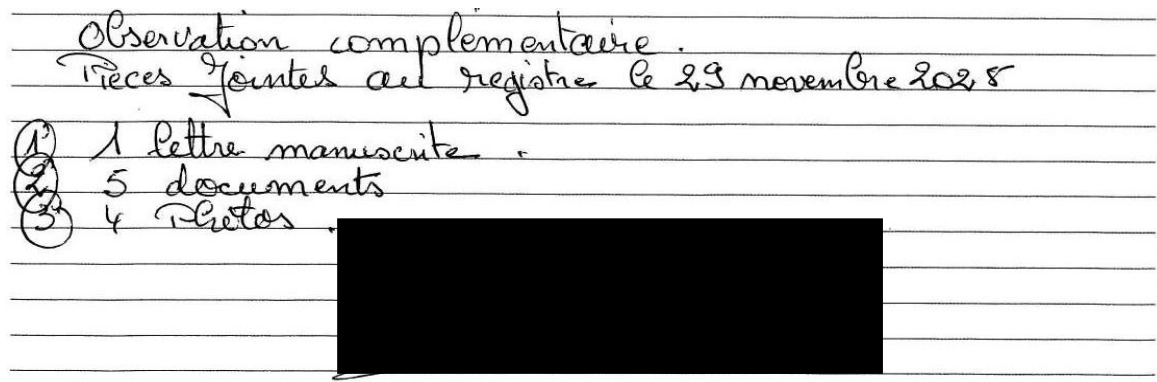 Observation complémentaire.
Pièces Jointes au registre le 29 novembre 2025
1° 1 lettre manuscrite.
2° 5 documents
3° 4 Photos.